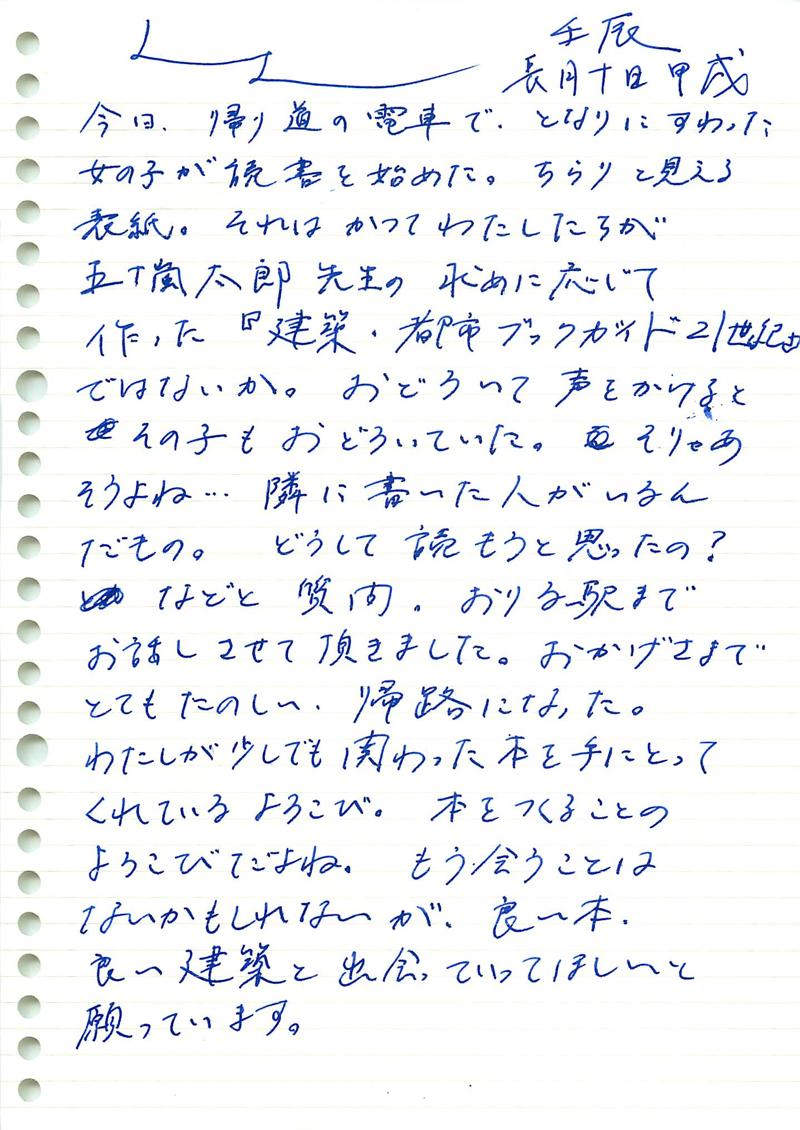 壬辰
長月十日 甲戌
今日、帰り道の電車で、となりにすわった
女の子が読書を始めた。ちらりと見える
表紙。それはかつてわたしたちが
五十嵐太郎先生の求めに応じて
作った『建築・都市ブックガイド21世紀』
ではないか。おどろいて声をかけると
その子もおどろいていた。そりゃあ
そうよね… 隣に書いた人がいるん
だもの。 どうして読もうと思ったの?
などと質問。おりる駅まで
お話しさせて頂きました。おかげさまで
とてもたのしい、帰路になった。
わたしが少しでも関わった本を手にとって
くれているよろこび。本をつくることの
よろこびだよね。 もう会うことは
ないかもしれないが、良い本、
良い建築と出会っていってほしいと
願っています。